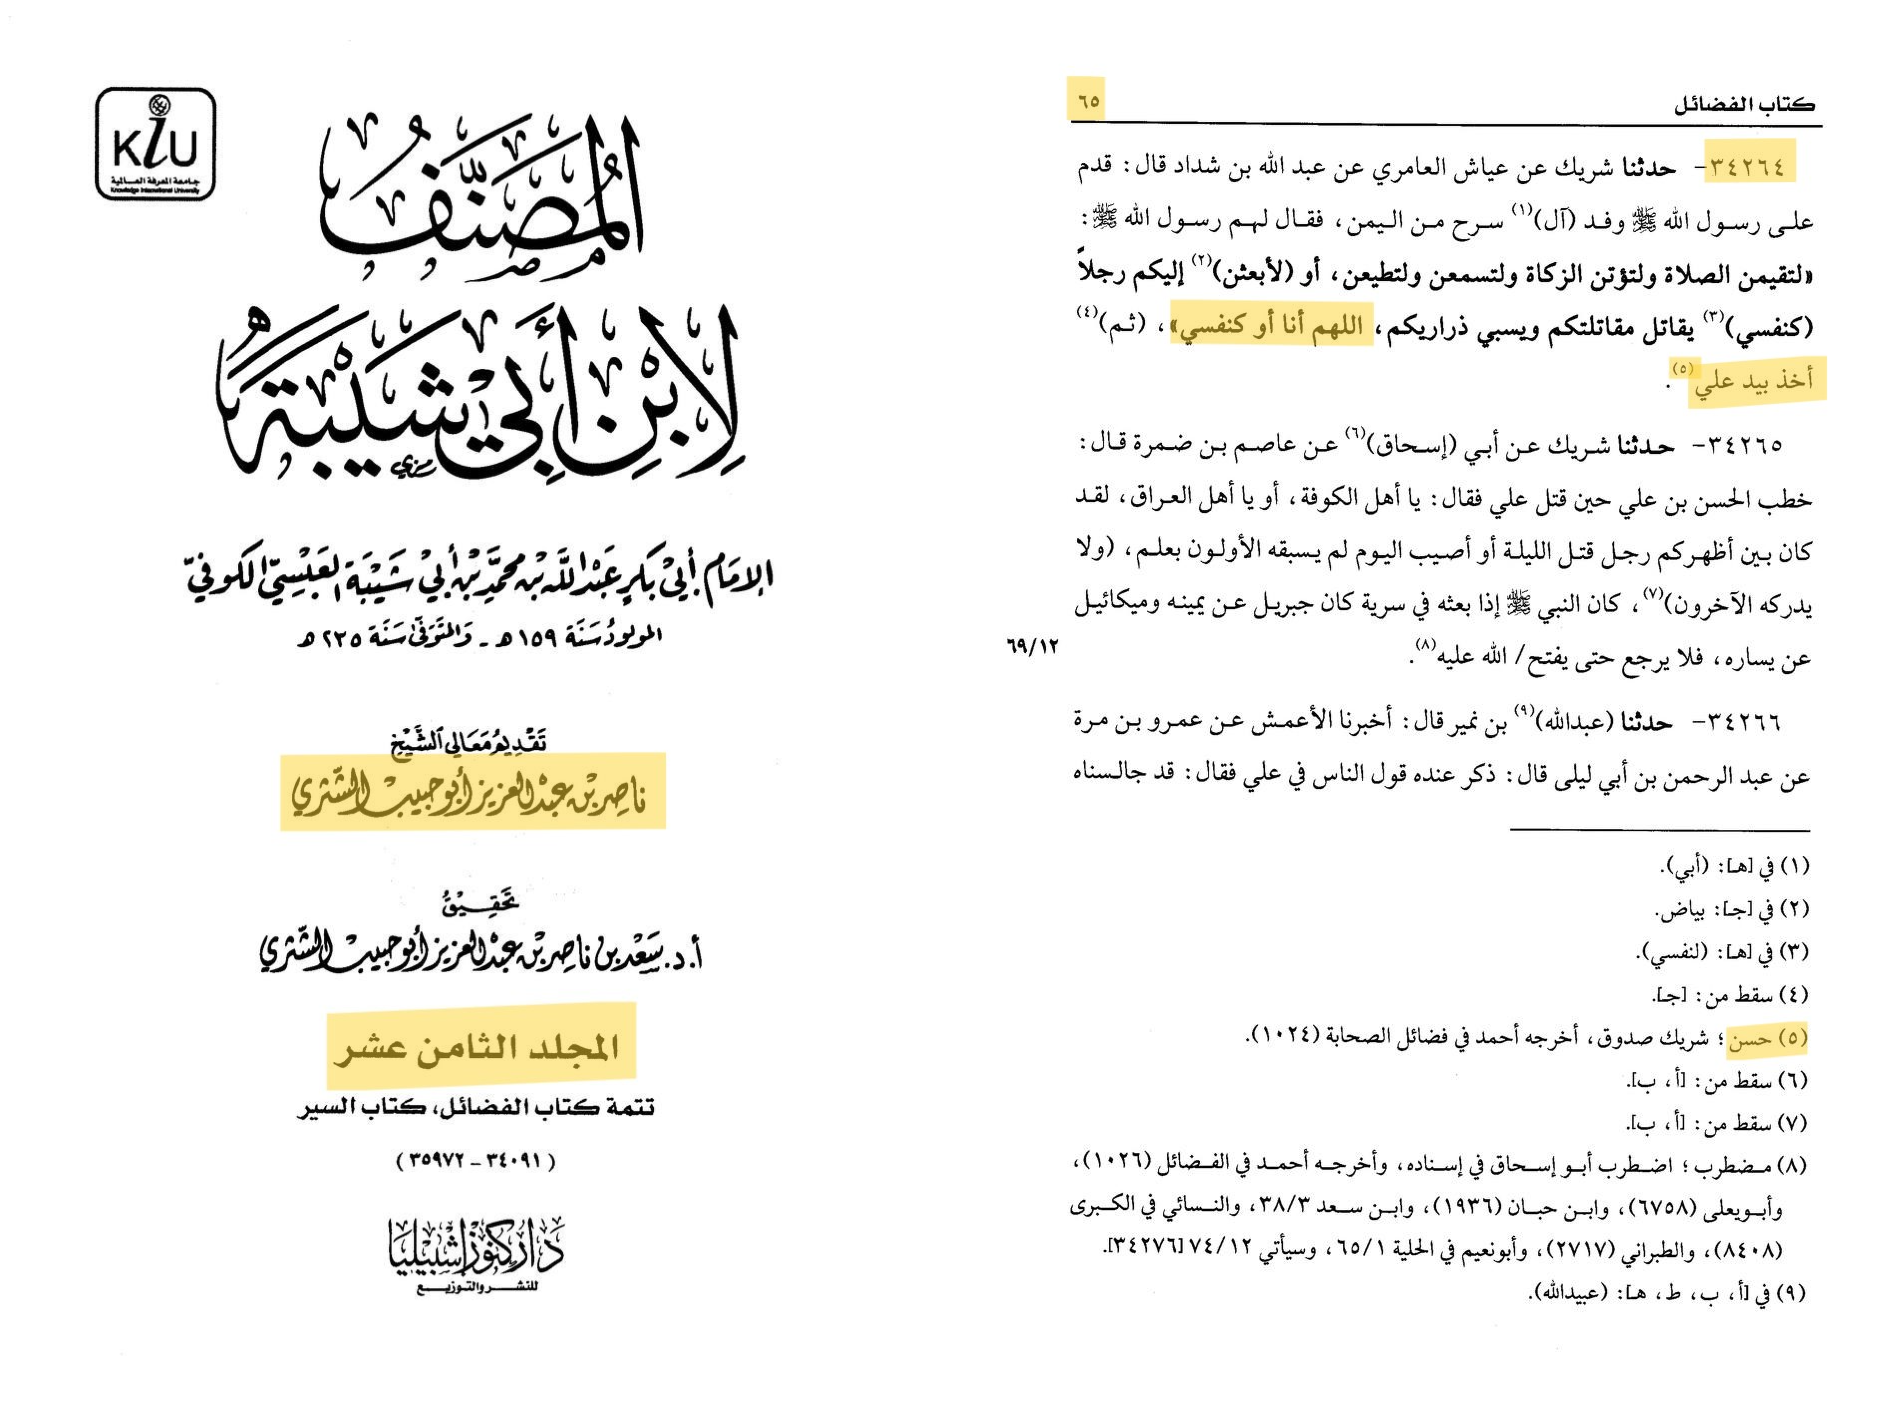 KiU
جامعة المعرفة العالمية
Knowledge International University
المُصَنَّفُ
لِابْنِ أَبِي شَيْبَةَ
الإمَام أَبِي بَكرٍ عَبْد اللَّه بْن مُحمَّدِ بْن أَبِي شَيْبَة العَبْسِيّ الكُوفيّ
المولودُ سَنَة ١٥٩ هـ - وَالمتَوَفَّى سَنَة ٢٣٥ هـ
تَقْدِيم مَعَالي الشَّيْخ
نَاصِر بْن عَبْد العَزيز أبُو حَبيب الشَّثري
تَحْقِيْقُ
أ.د. سَعْد بن نَاصِر بْن عَبْد العَزيز أبُو حَبيب الشَّثري
المجلد الثامن عشر
تتمة كتاب الفضائل، كتاب السير
(٣٤٠٩١ - ٣٥٩٧٢)
دَار كنُوز إشبيليَا
للنشر والتوزيع
كتاب الفضائل ٦٥
٣٤٢٦٤- حدثنا شريك عن عياش العامري عن عبد الله بن شداد قال: قدم
على رسول الله ﷺ وفد (آل)(١) سرح من اليمن، فقال لهم رسول الله ﷺ:
«لتقيمن الصلاة ولتؤتن الزكاة ولتسمعن ولتطيعن، أو (لأبعثن)(٢) إليكم رجلاً
(كنفسي)(٣) يقاتل مقاتلتكم ويسبي ذراريكم، اللهم أنا أو كنفسي»، (ثم)(٤)
أخذ بيد علي(٥).
٣٤٢٦٥- حدثنا شريك عن أبي (إسحاق)(٦) عن عاصم بن ضمرة قال:
خطب الحسن بن علي حين قتل علي فقال: يا أهل الكوفة، أو يا أهل العراق، لقد
كان بين أظهركم رجل قتل الليلة أو أصيب اليوم لم يسبقه الأولون بعلم، (ولا
يدركه الآخرون)(٧)، كان النبي ﷺ إذا بعثه في سرية كان جبريل عن يمينه وميكائيل
عن يساره، فلا يرجع حتى يفتح/ الله عليه(٨). ٦٩/١٢
٣٤٢٦٦- حدثنا (عبدالله)(٩) بن نمير قال: أخبرنا الأعمش عن عمرو بن مرة
عن عبد الرحمن بن أبي ليلى قال: ذكر عنده قول الناس في علي فقال: قد جالسناه
(١) في [هـ]: (أبي).
(٢) في [جـ]: بياض.
(٣) في [هـ]: (لنفسي).
(٤) سقط من: [جـ].
(٥) حسن؛ شريك صدوق، أخرجه أحمد في فضائل الصحابة (١٠٢٤).
(٦) سقط من: [أ، ب].
(٧) سقط من: [أ، ب].
(٨) مضطرب؛ اضطرب أبو إسحاق في إسناده، وأخرجه أحمد في الفضائل (١٠٢٦)،
وأبويعلى (٦٧٥٨)، وابن حبان (١٩٣٦)، وابن سعد ٣٨/٣، والنسائي في الكبرى
(٨٤٠٨)، والطبراني (٢٧١٧)، وأبونعيم في الحلية ٦٥/١، وسيأتي ٧٤/١٢ [٣٤٢٧٦].
(٩) في [أ، ب، ط، هـ]: (عبيدالله).